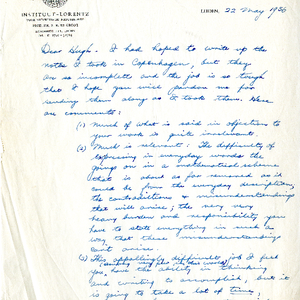 INSTITUUT-LORENTZ
LEIDEN, 22 May 1956
Dear Hugh: I had hoped to write up the
notes I took in Copenhagen, but they
are so incomplete and the job is so tough
that I hope you will pardon me for
sending them along as I took them. Here
are comments:
(1) Much of what is said in objection to
your work is quite irrelevant.
(2) Much is relevant: The difficulty of
expressing in everyday words the
goings on in a mathematical scheme
that is about as far removed as it
could be from the everyday description,
the contradictions & misunderstandings
that will arise; the very very
heavy burden and responsibility you
have to state everything in such a
way that these misunderstandings
can't arise.
(3) This appalling difficulty, I feel
you, have the ability in thinking
and writing to accomplish, but it
is going to take a lot of time,